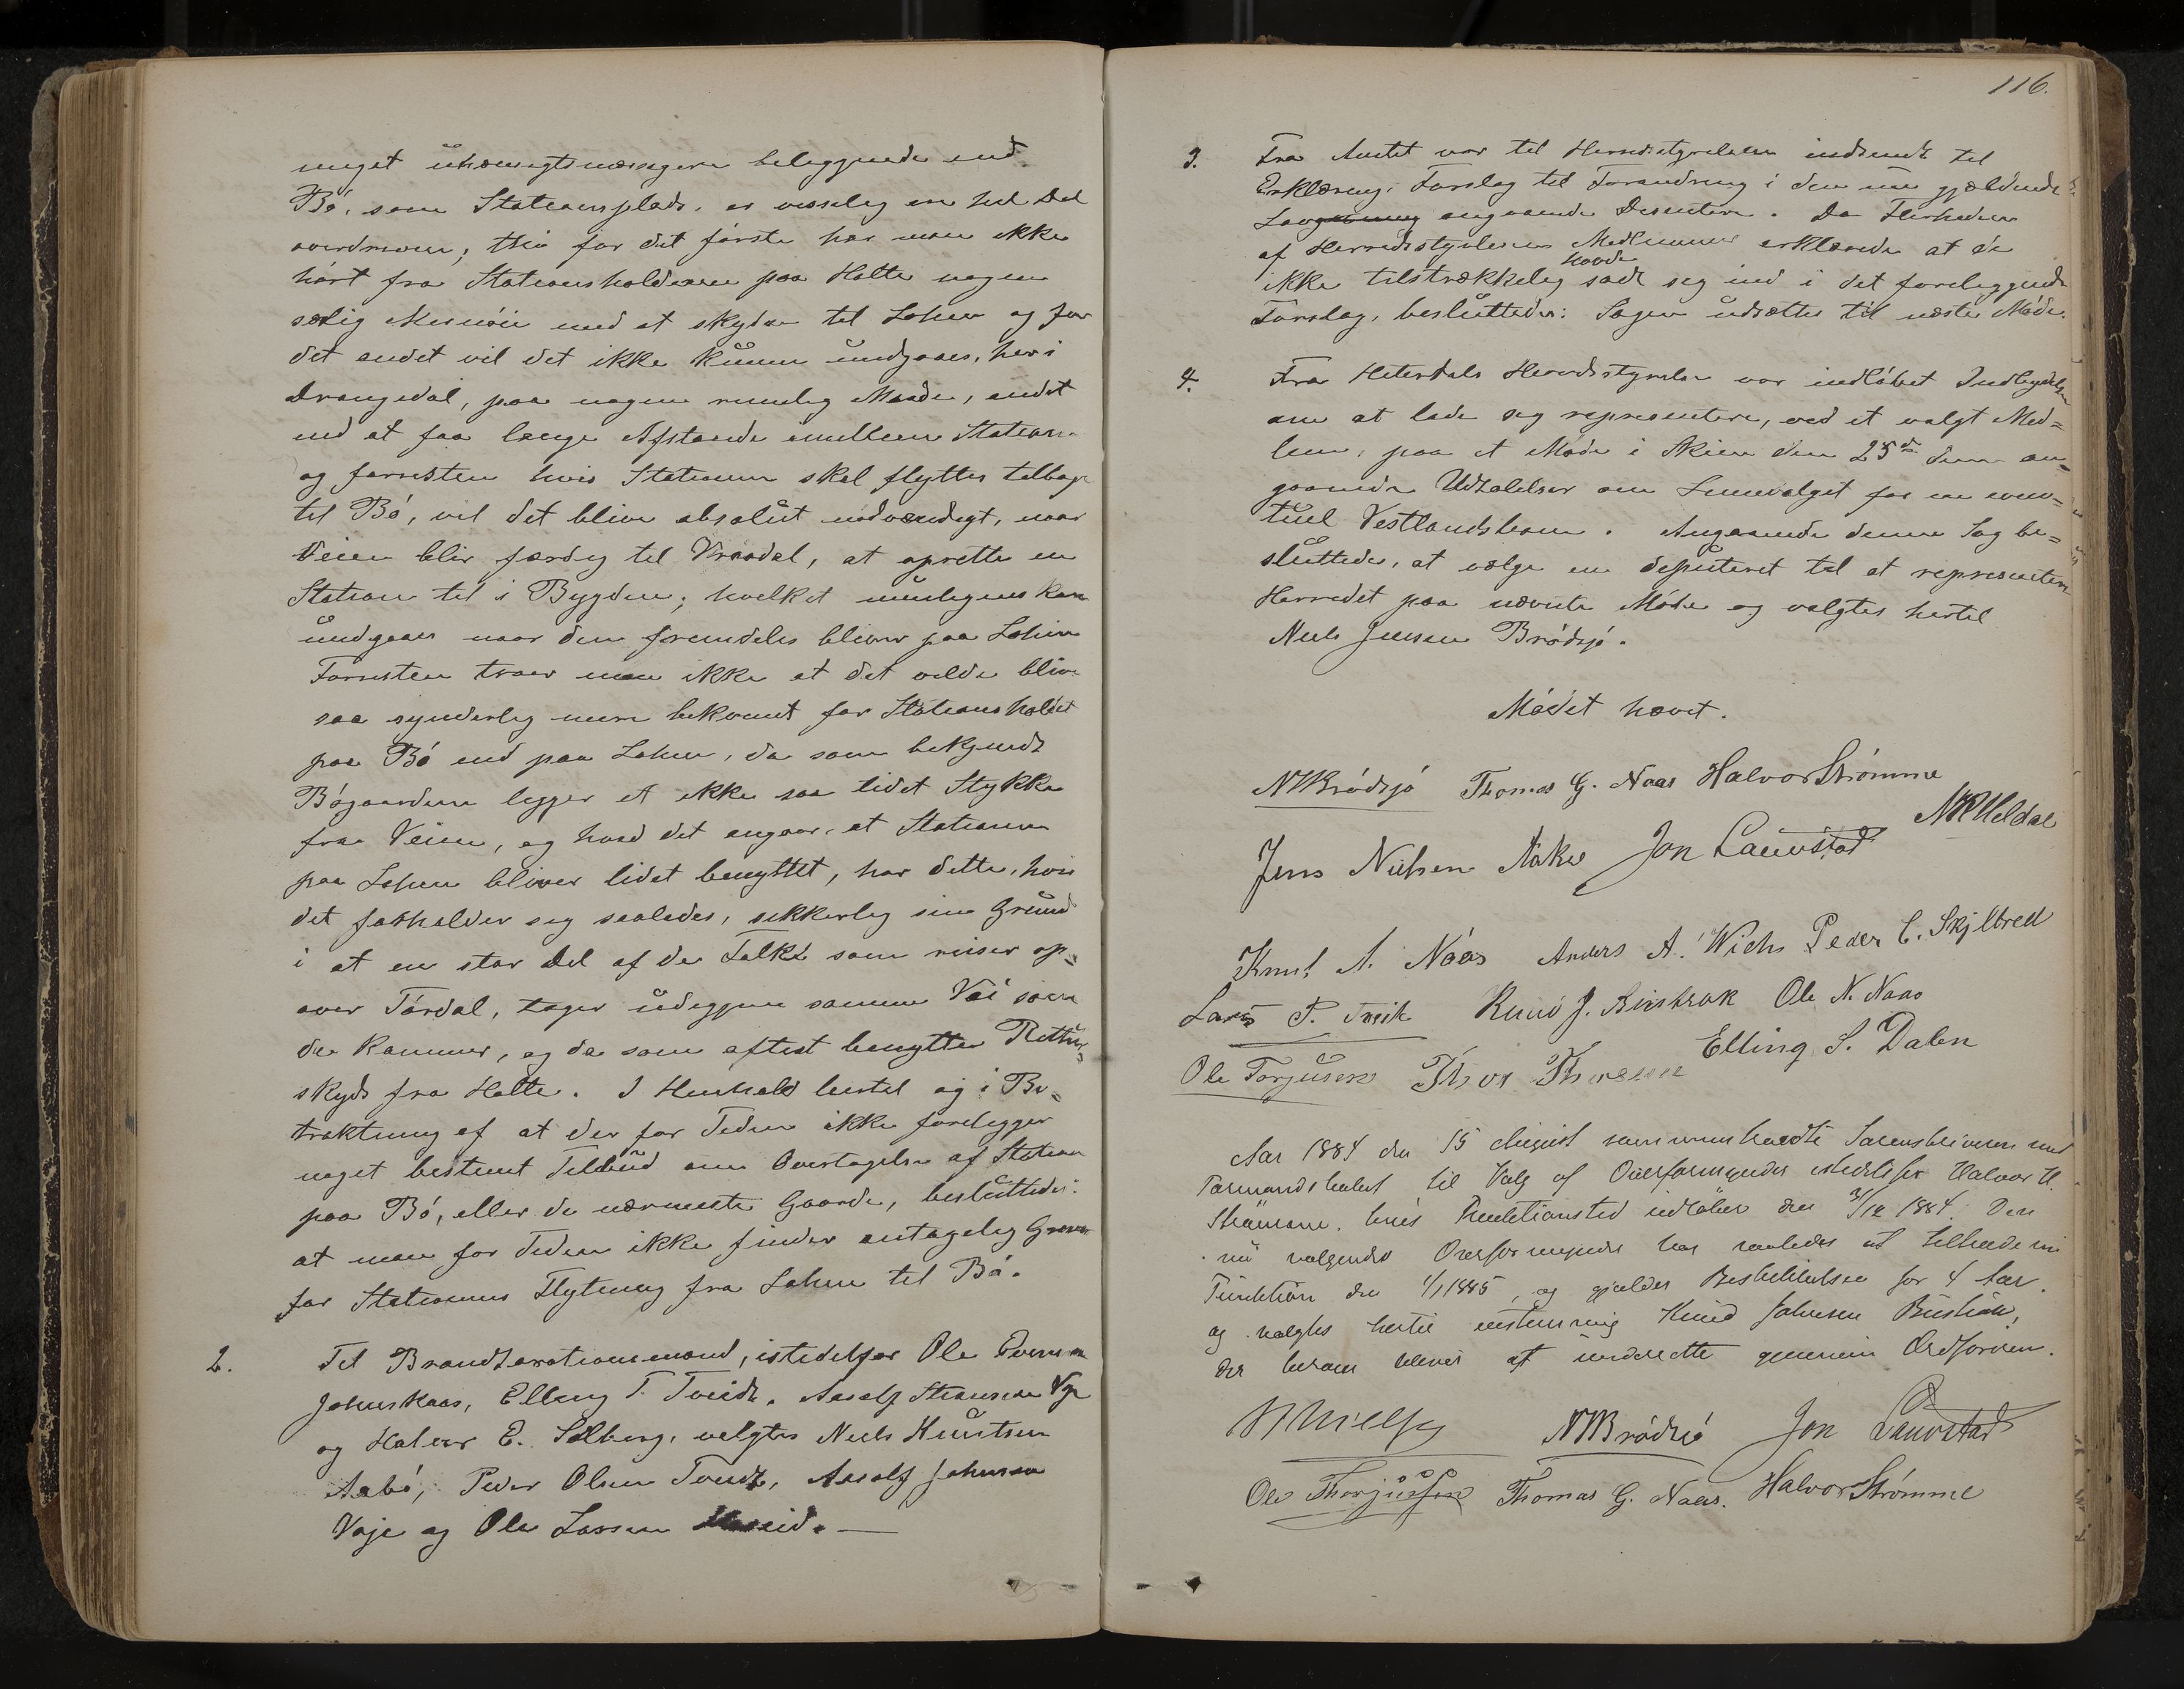 meget uhensigtsmæssigere beliggende end
Bö, som Stationsplads, er visselig en hel Del
overdreven; thi for det förste har man ikke
hört fra Stationsholderen paa Holte nogen
særlig Misnöie med at skydse til Lohne og for
det andet vil det ikke kunne undgaaes, her i
Drangedal, paa nogen rimelig Maade, andet
end at faa lange Afstande imellem Station.
og forresten hvis Stationen skal flyttes tilbage
til Bö, vil det blive absolut nödvendigt, naar
Veien blir færdig til Vraadal, at oprette en
Station til i Bygden; hvilket muligens kan
undgaaes naar den fremdeles bliver paa Lohne
Forresten troer man ikke at det vilde blive
saa synderlig mere bekvemt for Stationsholdet
paa Bö end paa Lohne, da som bekjendt
Bögaardene ligger et ikke saa lidet Stykke
fra Veien, og hvad det angaar, at Stationen
paa Lohne bliver lidet benyttet, har dette, hvis
det forholder sig saaledes, sikkerlig sin Grund
i at en stor Del af de Folk som reiser op=
over Tördal, tager udigjen samme Vei som
de kommer, og da som oftest benytter Retur=
skyds fra Holte. I Henhold hertil og i Be=
traktning af at der for Tiden ikke foreligger
noget bestemt Tilbud om Overtagelse af Station
paa Bö, eller de nærmeste Gaarde, besluttedes:
at man for Tiden ikke finder antagelig Grund
for Stationens Flytning fra Lohne til Bö.
2. Til Brandtaxationsmænd, istedetfor Ole Evensen
Johnskaas, Elling T. Tveidt, Aasolf Steansen Voje
og Halvor E. Solberg, valgtes Niels Knutsen
Aabö, Peder Olsen Tveidt, Aasolf Johnsen
Voje og Ole Larsen
116.
3. Fra Amtet var til Herredsstyrelsen indsendt til
Erklæring: Forslag til Forandring i den nu gjældende
Lovgivning angaaende Dissentere. Da Fleerheden
af Herredsstyrelsens Medlemmer erklærede at de
havde
ikke tilstrækkelig sadt sig ind i det foreliggende
Forslag, besluttedes: Sagen udsættes til næste Möde.
4. Fra Hiterdals Herredsstyrelse var indlöbet Indbydelse
om at lade sig representere, ved et valgt Med=
lem, paa et Möde i Skien den 25de dennes an=
gaaende Udtalelser om Linievalget for en even=
tuel Vestlandsbane. Angaaende denne Sag be=
sluttedes, at vælge en deputeret til at representere
Herredet paa nævnte Möde og valgtes hertil
Niels Jensen Brödsjö.
Mödet hævet.
NJBrödsjö Thomas G. Naas Halvor Strömme
Jens Nielsen Aakre Jon Lauvstad
Knut A. Naas Anders A. Peder C. Skjelbred
Lars P. Knud J. Ole N. Naas
Elling S. Dalen
Ole Torjusen Thor
Aar 1884 den 15 August sammenkaldte Sorenskriveren med
Formandskabet til Valg af Overformynder istedetfor Halvor H.
Strömme, hvis Funktionstid udlöber den 31/12 1884. Den
nu valgende Overformynder har saaledes at tiltræde sin
Funktion den 1/1 1885, og gjælder Bestillelsen for 4 Aar,
og valgtes hertil enstemmig Knud Johnsen
der herom bliver at underrette gjennem Ordföreren.
NJBrödsjö Jon Lauvstad
Ole Thorjussen Thomas G. Naas. Halvor Strömme